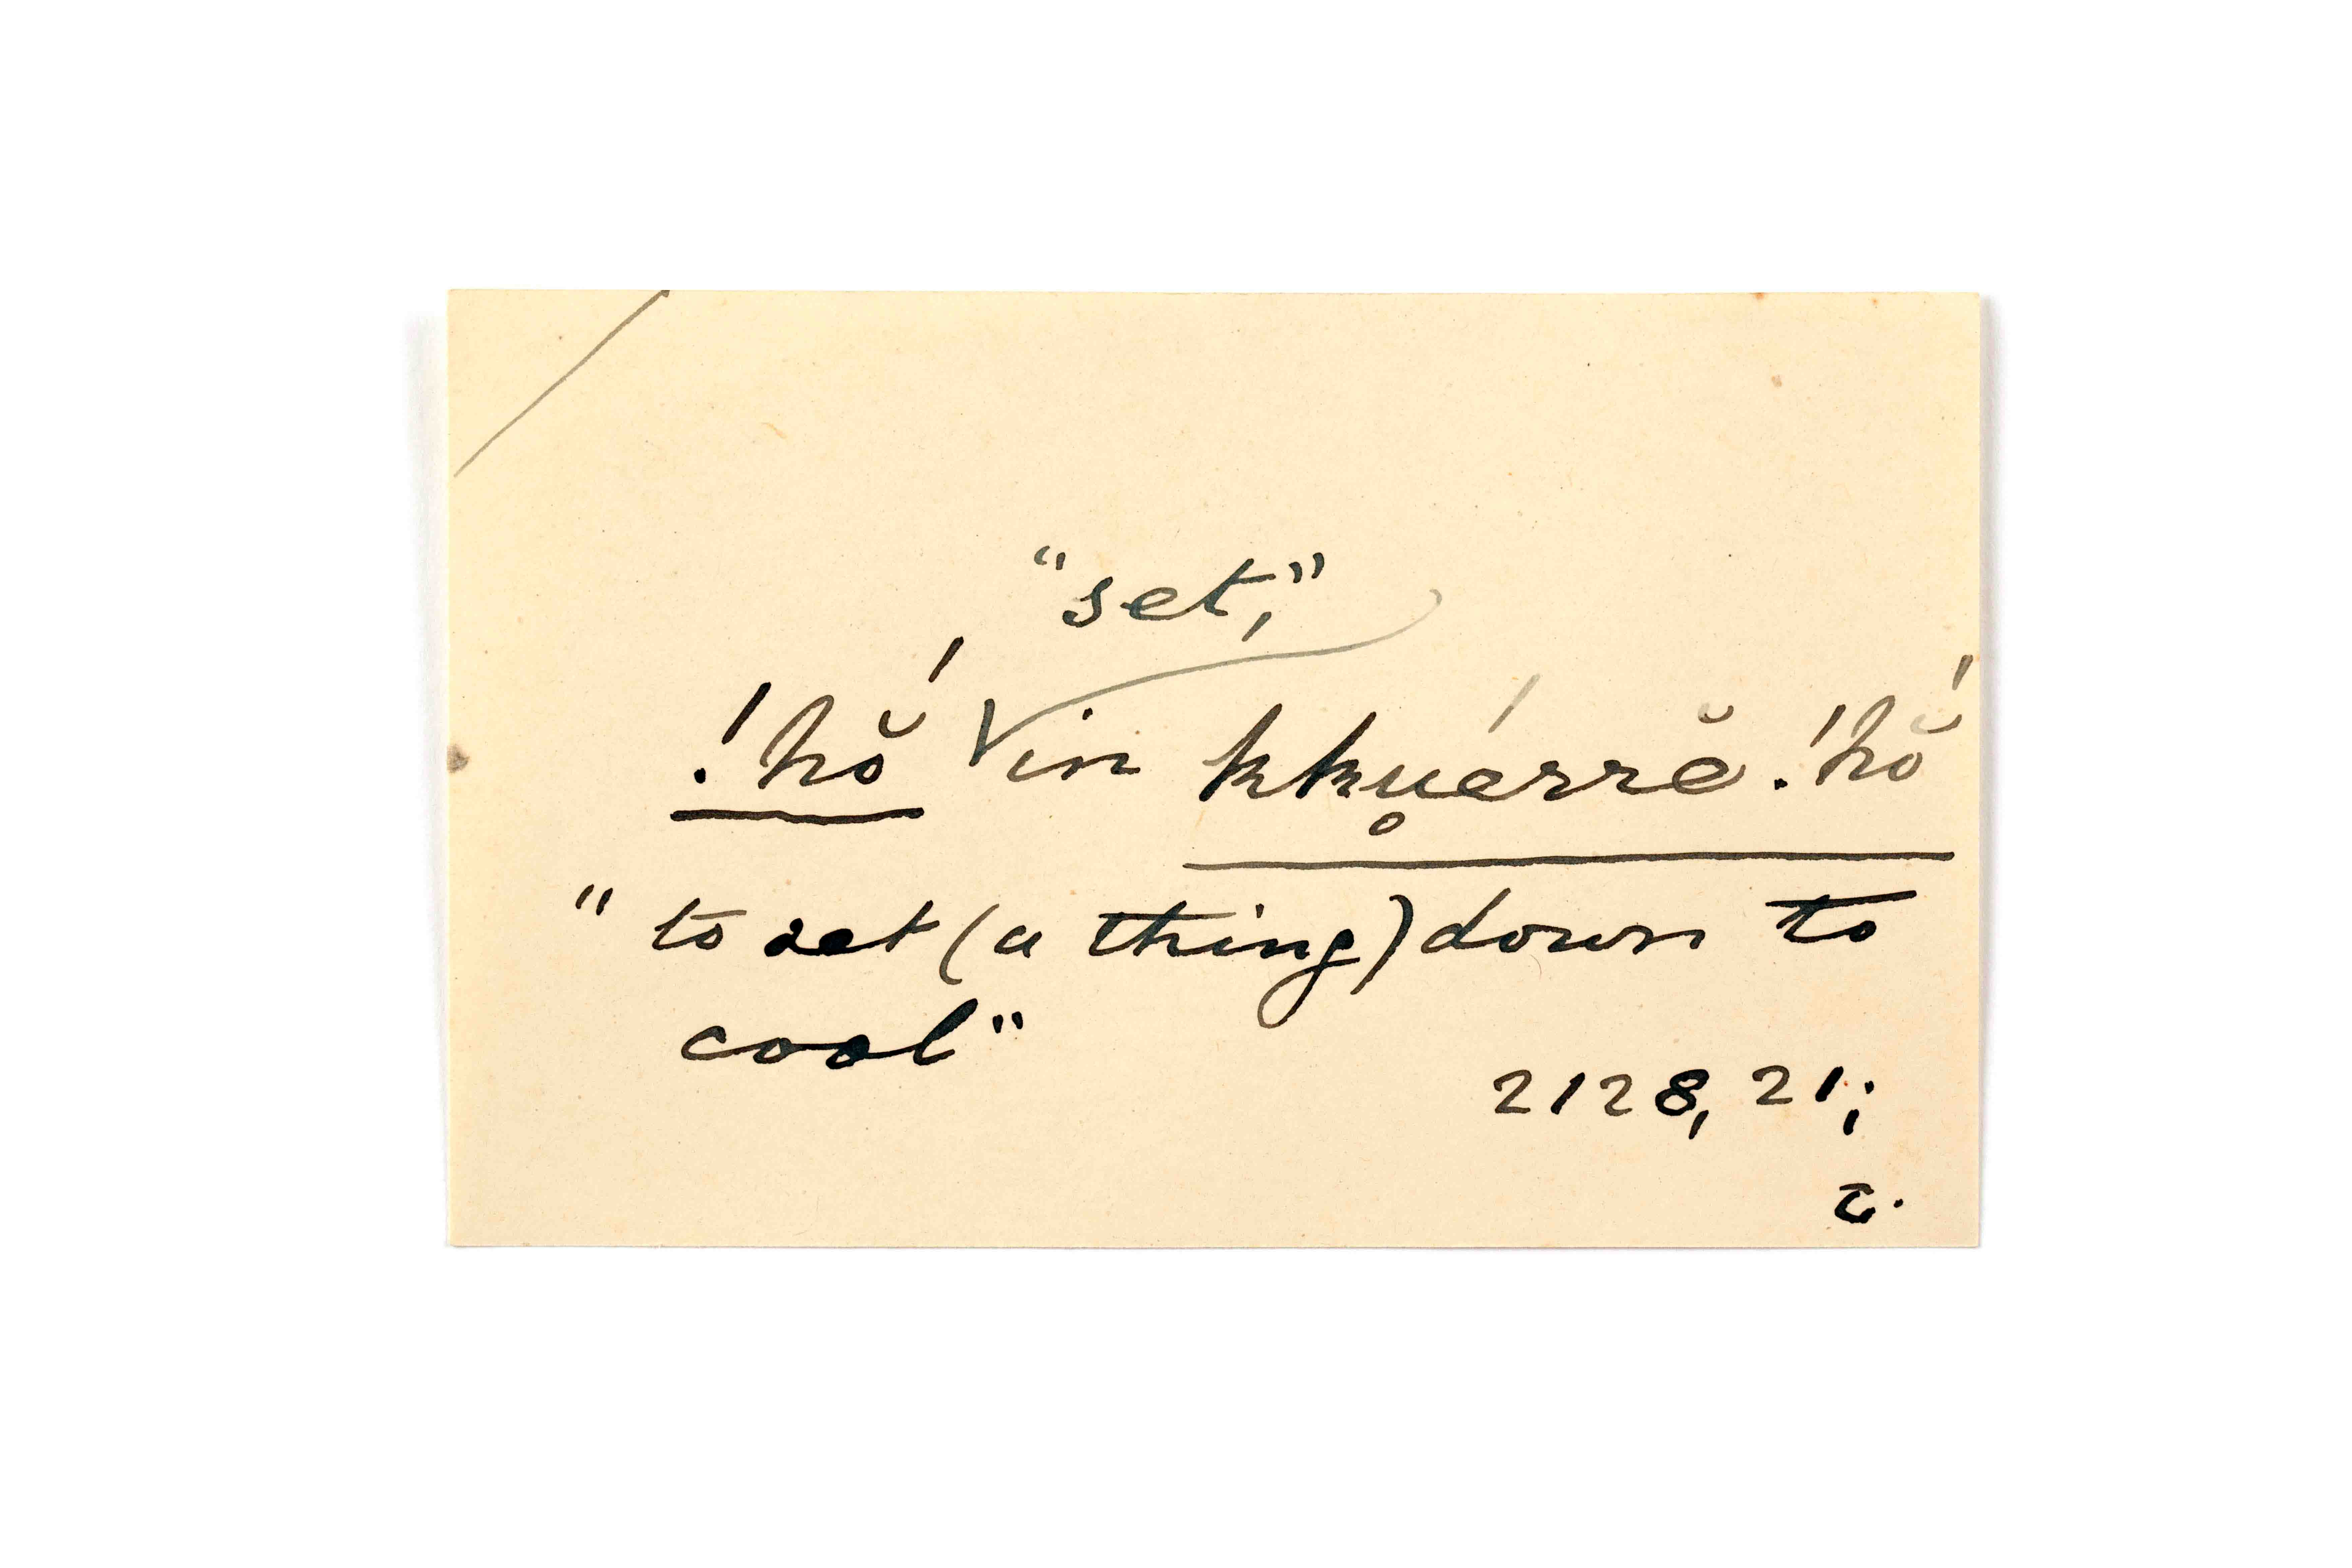 "set,"
!hŏ́ in kku̥érrĕ !hŏ́
"to set (a thing) down to
cool"
2128, 21;
c.